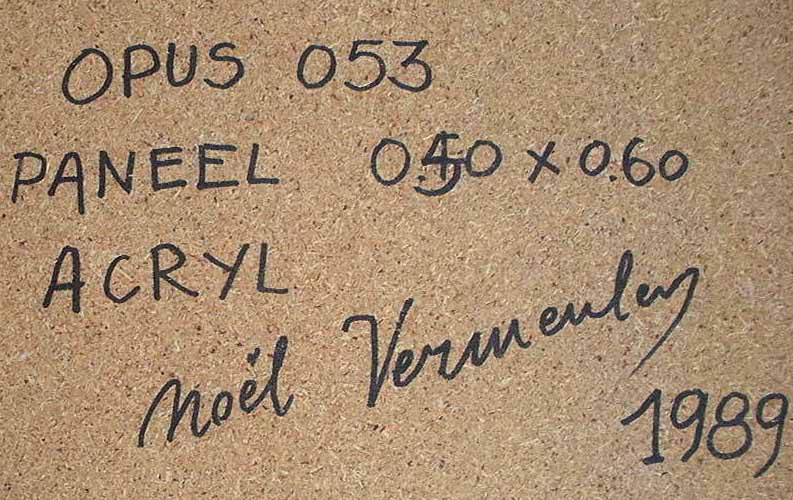 OPUS 053
PANEEL 0.50 x 0.60
ACRYL
Noël Vermeulen
1989